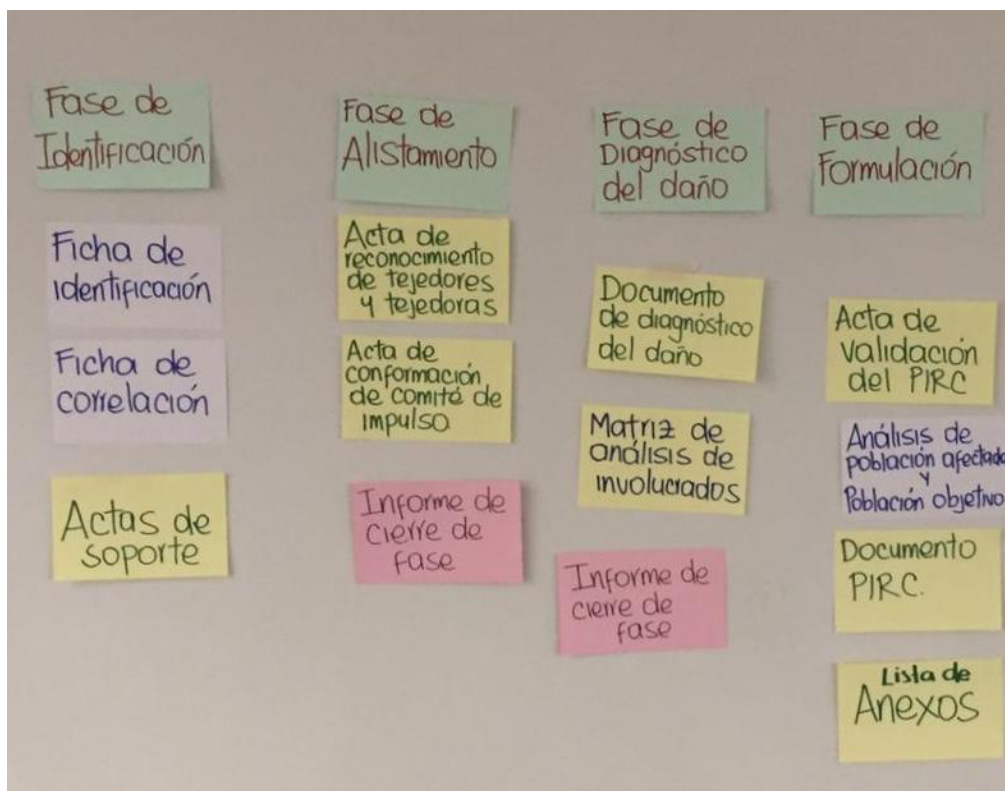 Fase de
Identificación
Ficha de
identificación
Ficha de
correlación
Actas de
soporte
Fase de
Alistamiento
Acta de
reconocimiento
de tejedores
y tejedoras
Acta de
conformación
de comité de
impulso
Informe de
cierre de
fase
Fase de
Diagnóstico
del daño
Documento
de diagnóstico
del daño
Matriz de
análisis de
involucrados
Informe de
cierre de
fase
Fase de
Formulación
Acta de
validación
del PIRC
Análisis de
población afectada
y
Población objetivo
Documento
PIRC.
Lista de
Anexos